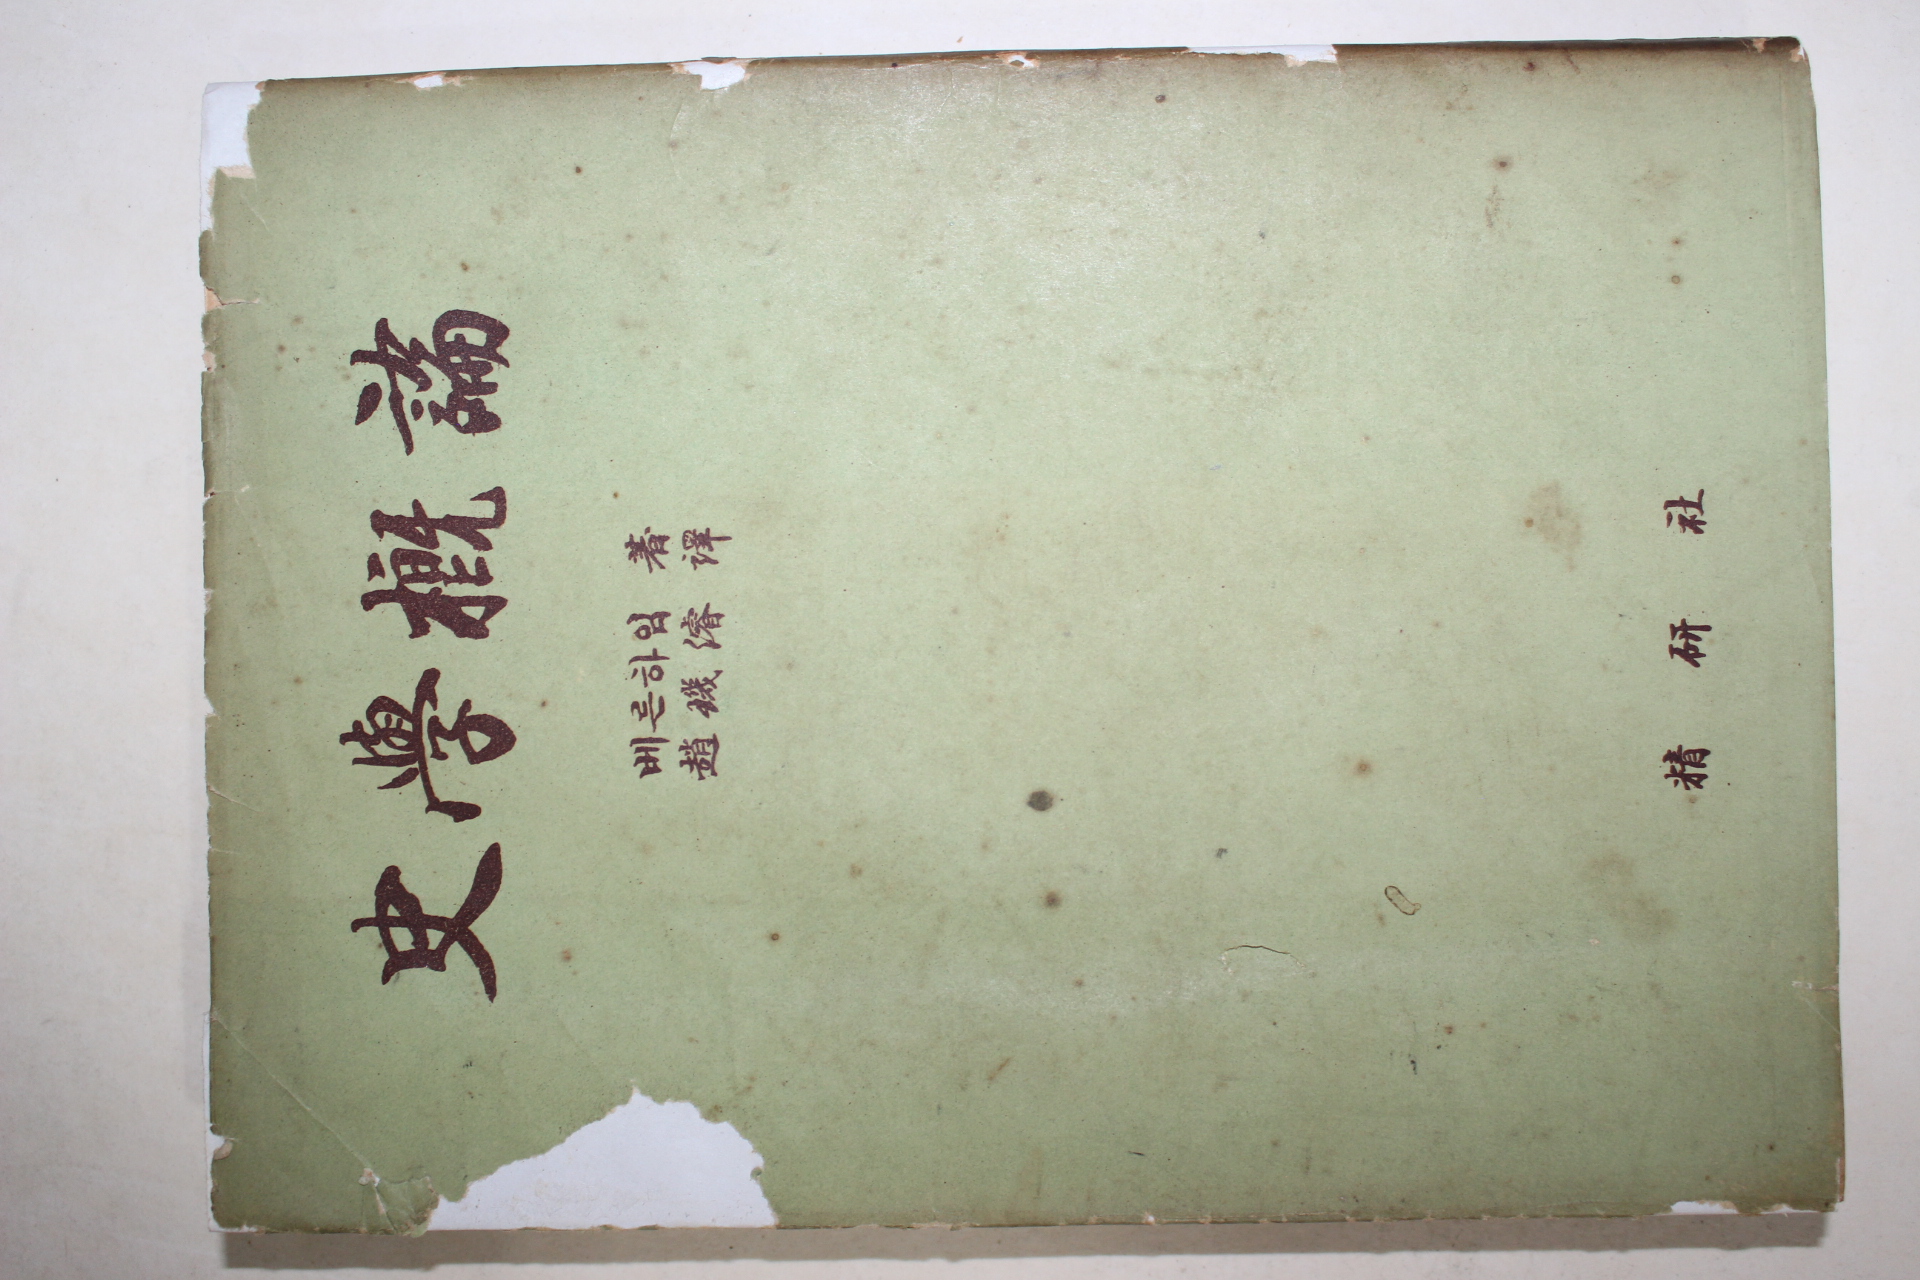 史學槪論
베른하임 著
趙璣濬 譯
精硏社